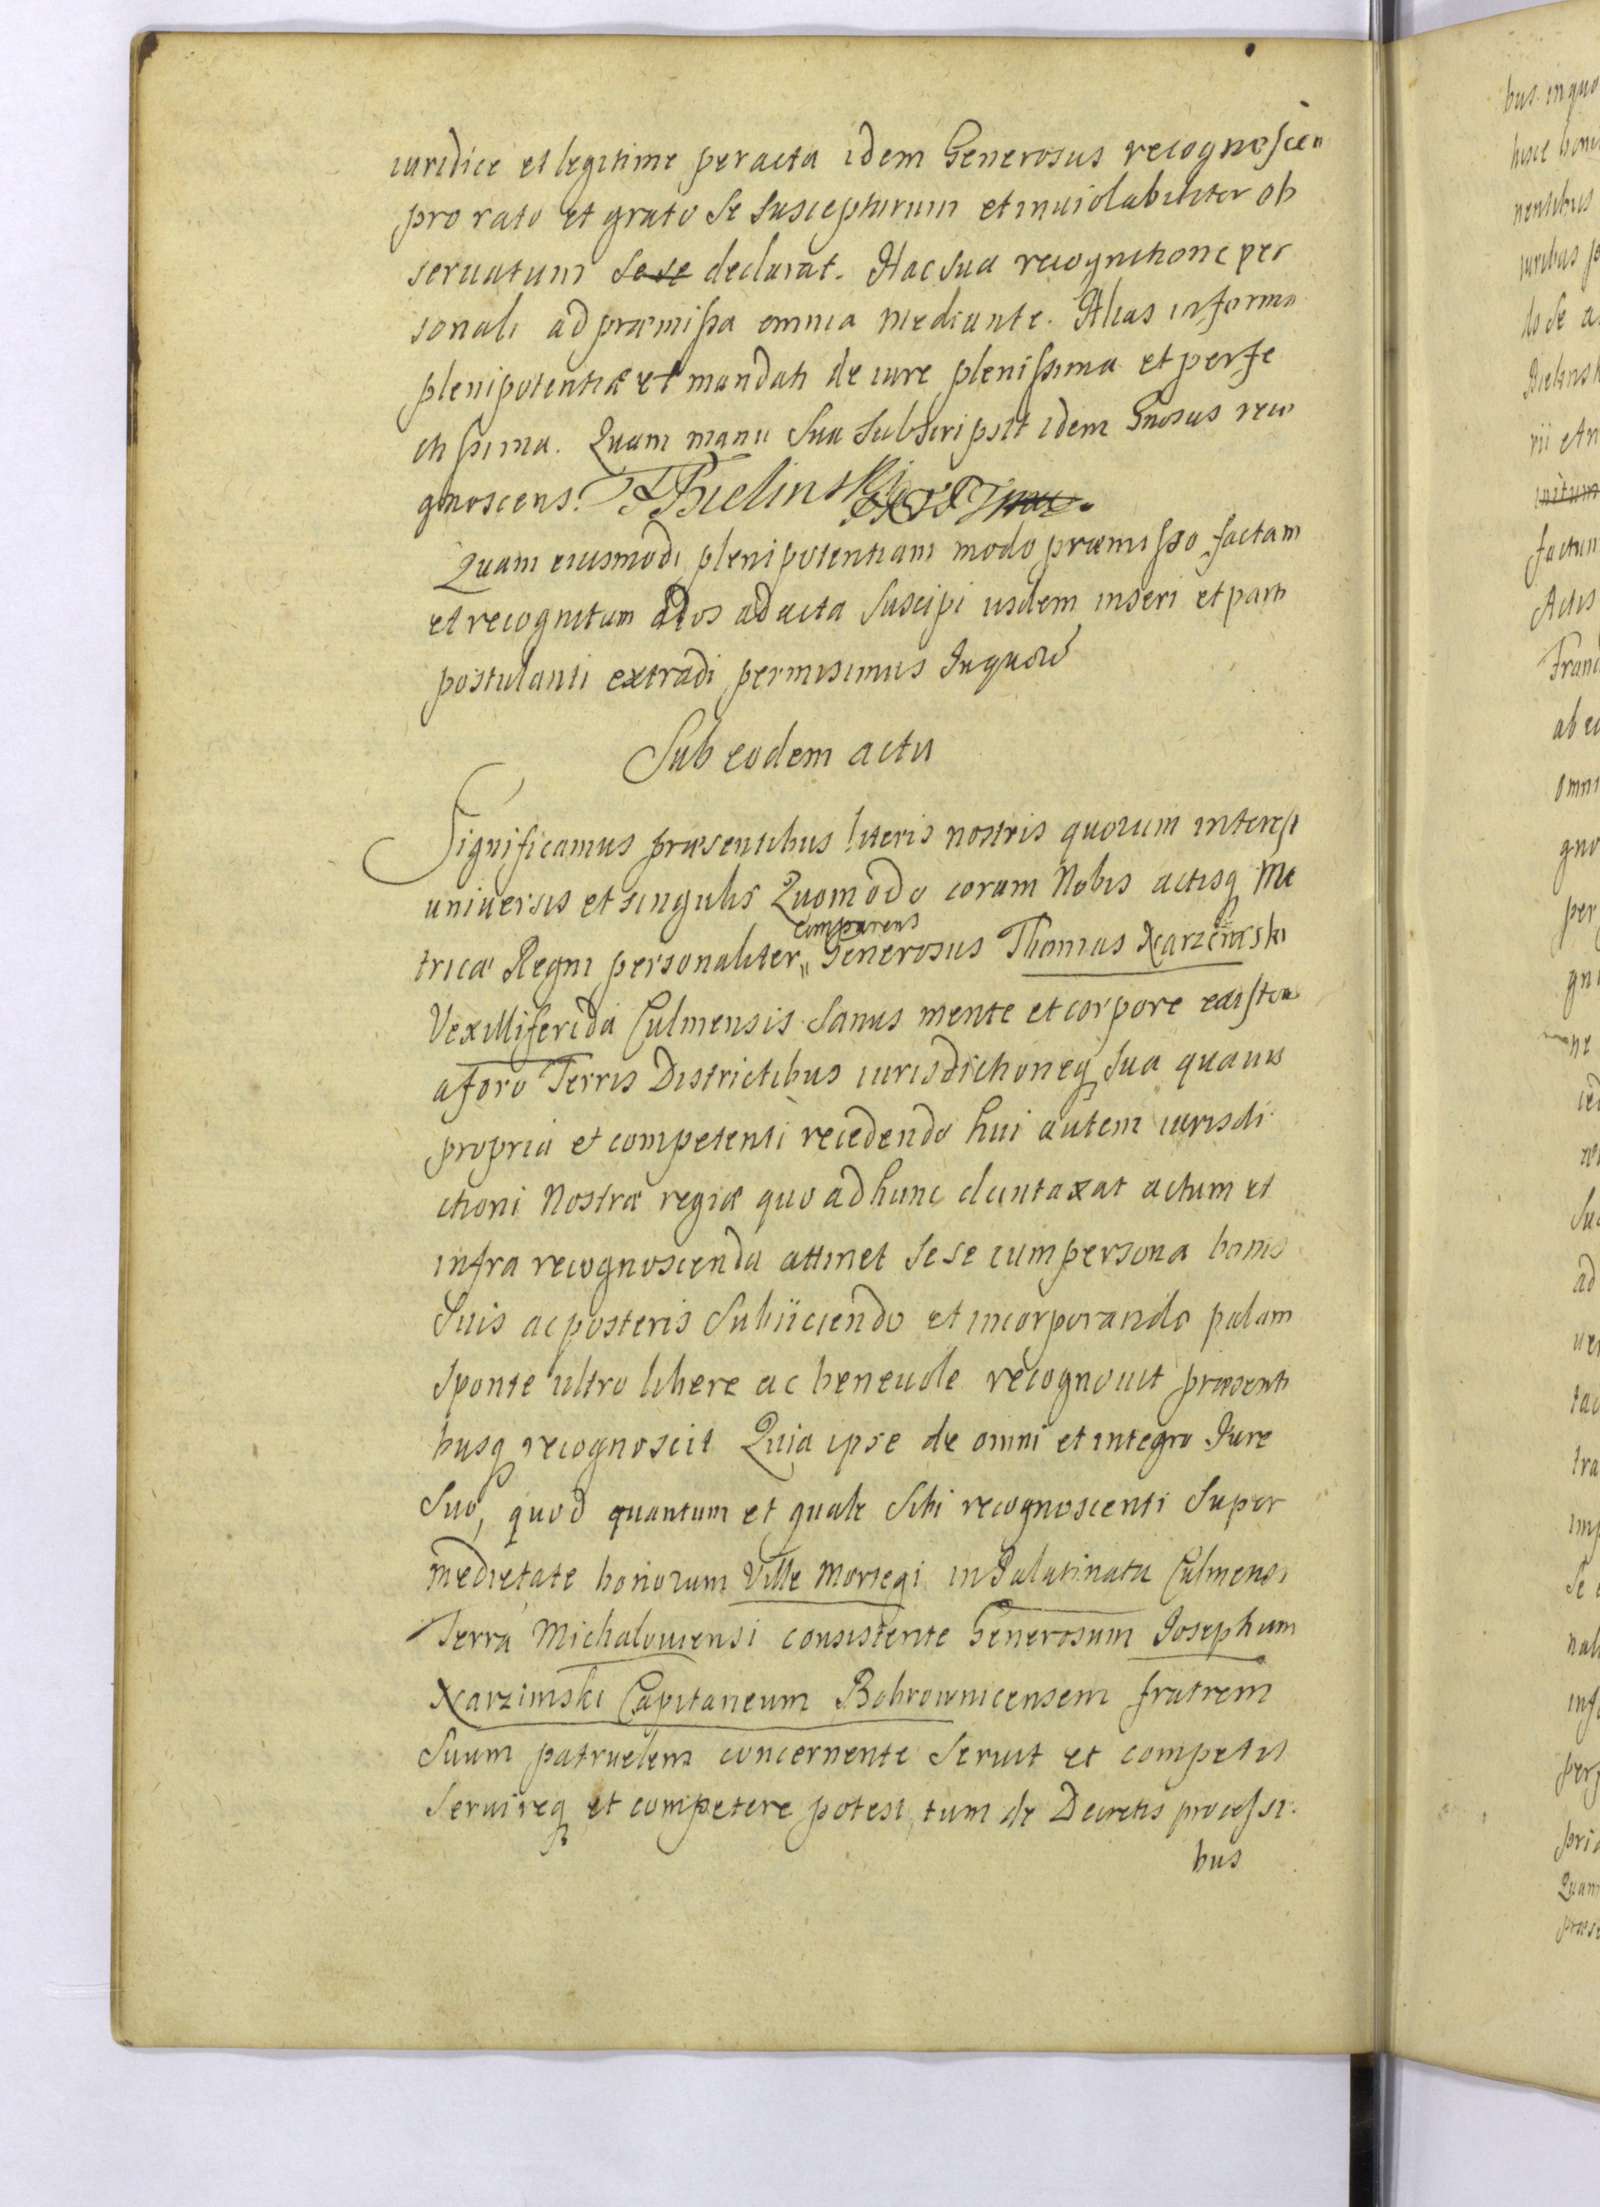 iuridice et legitime peracta idem Generosus recognoscen
pro rato et grato se suscepturum et inuiolabiliter ob
seruaturum sese declarat. Hac sua recognitione per
sonali ad præmissa omnia mediante. Alias in forma
plenipotentiæ et mandati de iure plenissima et perfe
ctissima. Quam manu sua subscripsit idem Gnosus reco
gnoscens. Bielinski
Quam eiusmodi plenipotentiam modo præmisso factam
et recognitam Nos ad acta suscipi iisdem inseri et parti
postulanti extradi permisimus In quorū
Sub eodem actu
Significamus præsentibus literis nostris quorum interest
universis et singulis Quomodo coram Nobis actisq Me
comparens
tricæ Regni personaliter Generosus Thomas Karzinski
Vexilliferida Culmensis sanus mente et corpore existen
a foro Terris Districtibus iurisdictioneq sua quauis
propria et competenti recedendo huic autem iurisdi
ctioni Nostræ regiæ quo ad hunc duntaxat actum et
infra recognoscenda attinet sese cum persona bonis
suis ac posteris subiiciendo et incorporando palam
sponte ultro libere ac beneuole recognouit præsenti
busq recognoscit Quia ipse de omni et integro Iure
suo, quod quantum et quale sibi recognoscenti super
medietate bonorum Villæ Mortegi in Palatinatu Culmensi
Terra Michalouiensi consistente Generosum Iosephum
Karzinski Capitaneum Bobrownicensem fratrem
suum patruelem concernente seruit et competit
seruireq et competere potest, tum de Decretis processi
bus
bus in quo
hisce boni
nentibus
iuribus
do se a
Bielinsk
rii et
initum
factum
Actis
Franc
ab eo
omni
gno
per
gni
ne
ad
tra
imp
se
perp
pria
Quam
præs